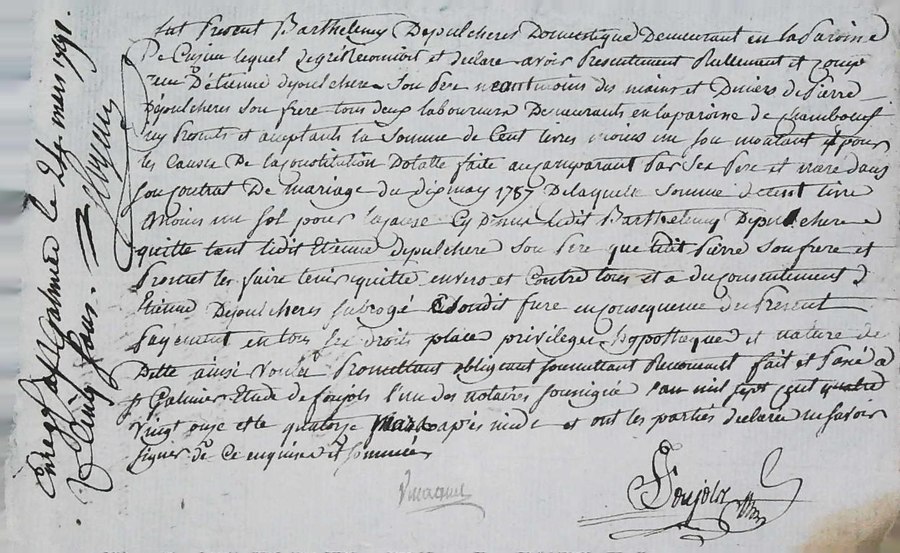 fut Present Barthelemy Depulcheres Domestique Demeurant en la Paroisse
De Cuzieu lequel de gré reconnoit et declare avoir Presentement Reellement et
reçu D'Etienne depulchere Son Pere neantmoins des mains et Deniers de Pierre
Depulcheres Son frere tous deux laboureurs Demeurants en la paroisse de chambœuf
icy Presents et acceptants la Somme de Cent livres moins un sou montant pour
les Causes De la Constitution Dotalle faite au comparant Par Ses Pere et mere dans
son contrat De mariage du dix may 1787 De laquelle Somme de cent livre
moins un sol pour la cause Cy Dessus ledit Barthelemy Depulchere
quitte tant ledit Etienne depulchere Son Pere que ledit Pierre Son frere et
Promet les faire tenir quitte envers et Contre tous et a du consentement D
Etienne Depulcheres subrogé Sondit frere en consequence du Present
Payement en tous les droits place privileges hypotheques et nature de
Dette ainsi Voulu Promettant obligeant soumettant Renonceant fait et Passé a
St Galmier Etude de soujols l'un des notaires soussignés l'an mil sept cent quatre
Vingt onze et le quatorze mars apès midi et ont les parties declaré ne savoir
signer de ce enquises et sommées
Soujols
Enreg. a St Galmier le 24 mars 1791.